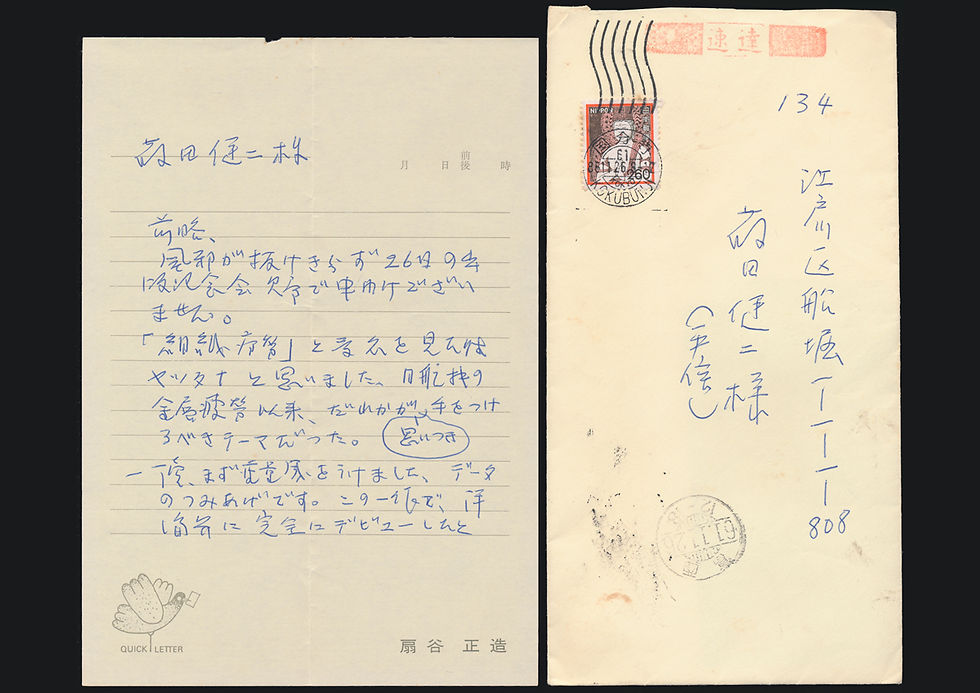 田健二様
月 日 前後 時
前略、
風邪が抜けきらず26日の出
版記念会欠席で申わけござい
ません。
「組織疲労」と書名を見た時
ヤッタナと思いました。日航機の
金属疲労以来、だれかが手をつけ
るべきテーマだった。
思いつき
一読、まず重量感を受けました、データ
のつみあげです。この一作で、評
論界に完全にデビューしたと
QUICK LETTER
扇谷 正造
速達
NIPPON
260
61
KOKUBUNJI
134
江戸川区船堀1-1-1-808
田健二様
(平信)